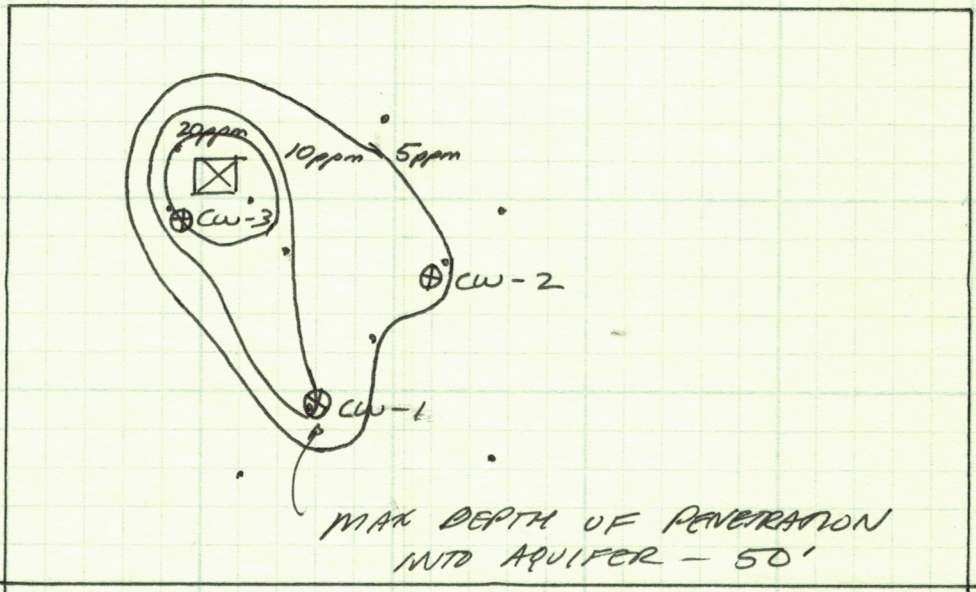 20ppm
10ppm
5ppm
CW-3
CW-2
CW-1
MAX DEPTH OF PENETRATION
INTO AQUIFER - 50'